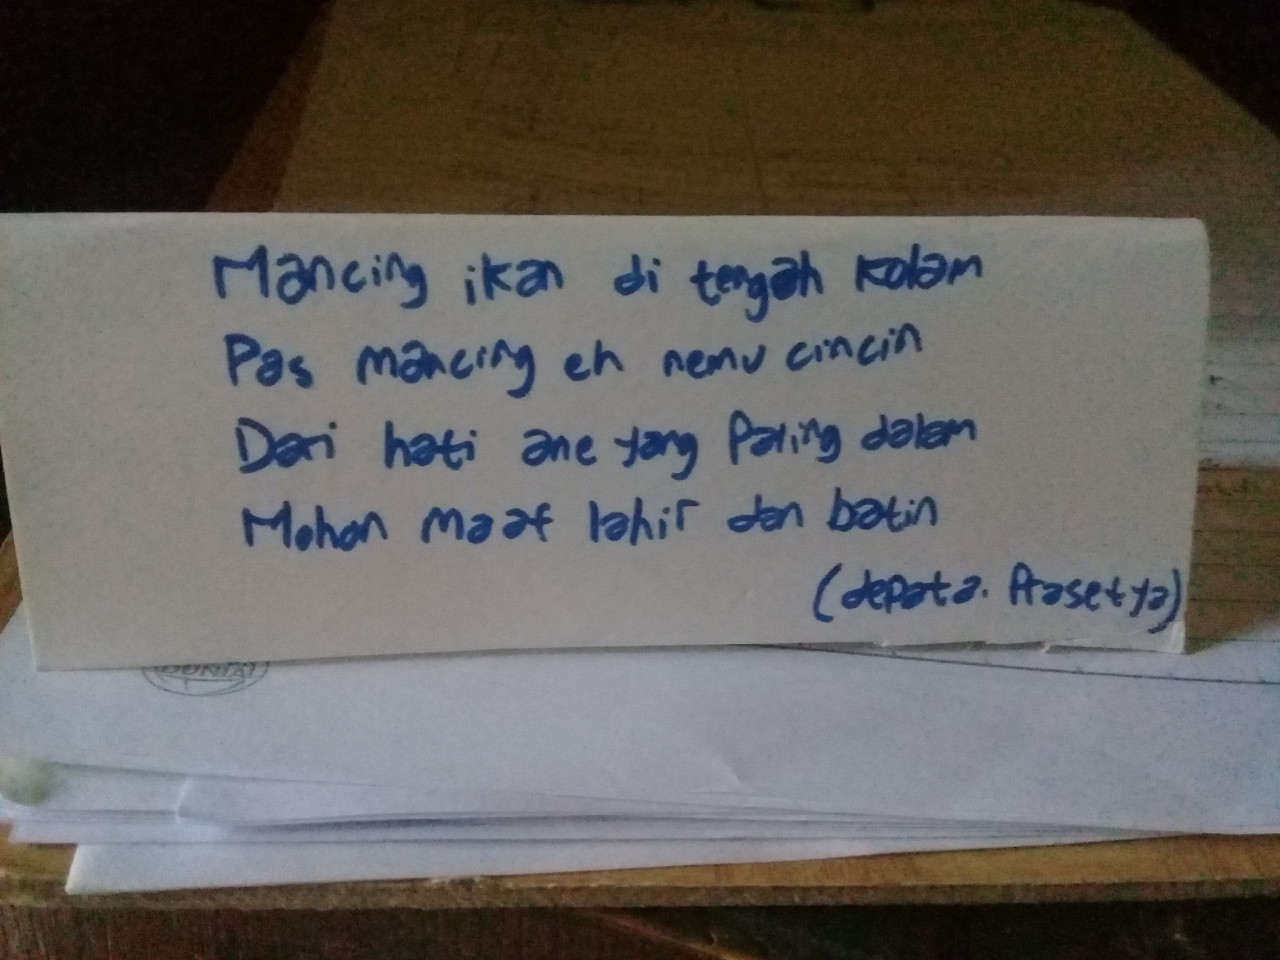 Mancing ikan di tengah kolam
Pas mancing eh nemu cincin
Dari hati ane yang Paling dalam
Mohon maaf lahir dan batin
(depata. Prasetya)